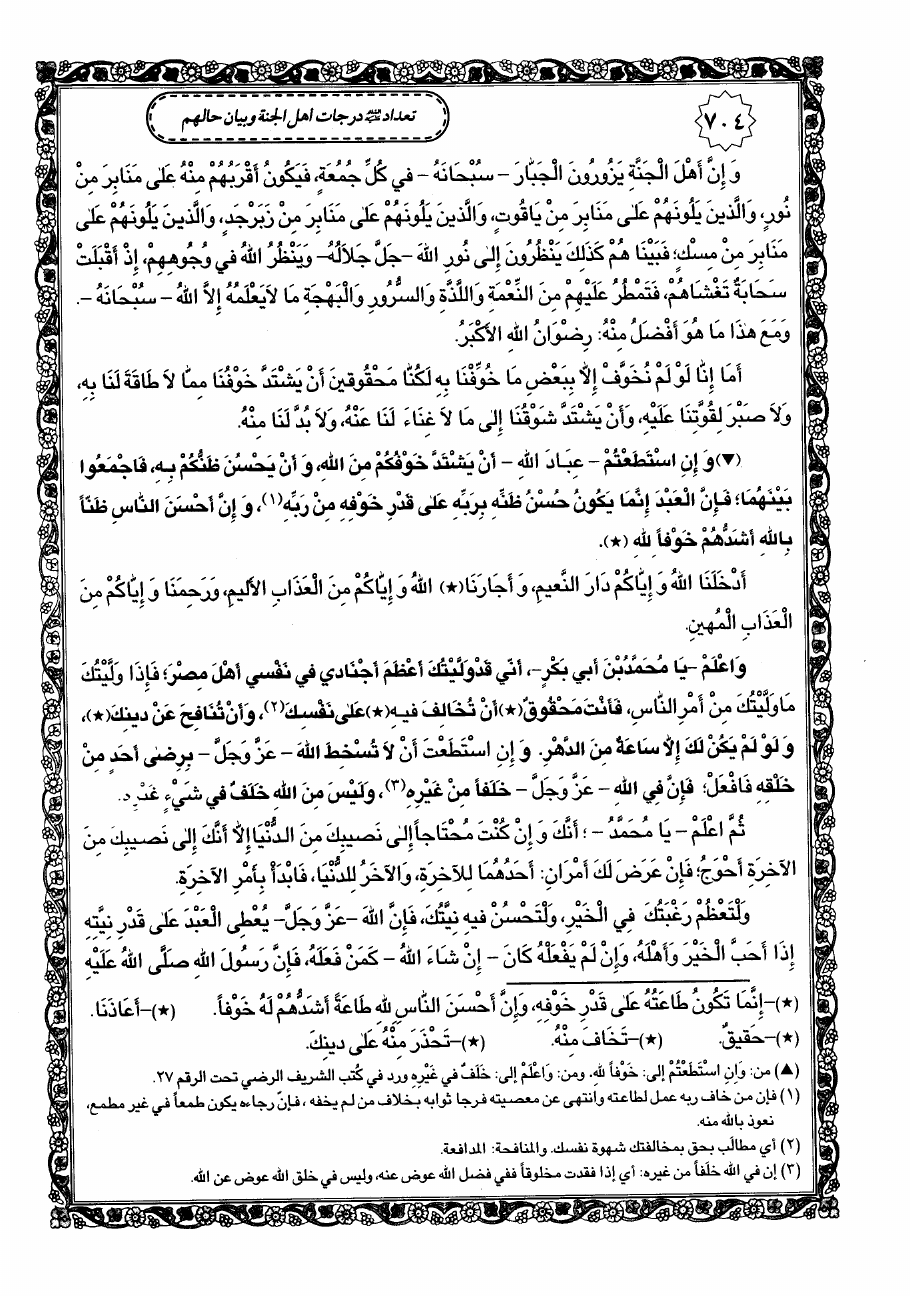 ٧٠٤
تعداده درجات أهل الجنة وبيان حالهم
وَإِنَّ أَهْلَ الْجَنَّةِ يَزُورُونَ الْجَبَّارَ - سُبْحَانَهُ - في كُلِّ جُمُعَةٍ، فَيَكُونُ أَقْرَبُهُمْ مِنْهُ عَلى مَنَابِرَ مِنْ
نُورٍ، وَالَّذينَ يَلُونَهُمْ عَلى مَنَابِرَ مِنْ يَاقُوتٍ، وَالَّذينَ يَلُونَهُمْ عَلى مَنَابِرَ مِنْ زَبَرْجَدٍ، وَالَّذينَ يَلُونَهُمْ عَلى
مَنَابِرَ مِنْ مِسْكٍ؛ فَبَيْنَا هُمْ كَذلِكَ يَنْظُرُونَ إِلى نُورِ اللهِ -جَلَّ جَلاَلُهُ- وَيَنْظُرُ اللهُ في وُجُوهِهِمْ، إِذْ أَقْبَلَتْ
سَحَابَةٌ تَغْشَاهُمْ، فَتَمْطُرُ عَلَيْهِمْ مِنَ النِّعْمَةِ وَاللَّذَّةِ وَالسُّرُورِ وَالْبَهْجَةِ مَا لاَيَعْلَمُهُ إِلاَّ اللهُ - سُبْحَانَهُ -.
وَمَعَ هذَا مَا هُوَ أَفْضَلُ مِنْهُ: رِضْوَانُ اللهِ الأَكْبَرُ.
أَمَا إِنَّا لَوْ لَمْ نُخَوَّفْ إِلاَّ بِبَعْضِ مَا خُوِّفْنَا بِهِ لَكُنَّا مَحْقُوقينَ أَنْ يَشْتَدَّ خَوْفُنَا مِمَّا لاَ طَاقَةَ لَنَا بِهِ،
وَلاَ صَبْرَ لِقُوَّتِنَا عَلَيْهِ، وَأَنْ يَشْتَدَّ شَوْقُنَا إِلى مَا لاَ غَنَاءَ لَنَا عَنْهُ، وَلاَ بُدَّ لَنَا مِنْهُ.
(▼) وَإِنِ اسْتَطَعْتُمْ - عِبَادَ اللهِ - أَنْ يَشْتَدَّ خَوْفُكُمْ مِنَ اللهِ، وَأَنْ يَحْسُنَ ظَنُّكُمْ بِهِ، فَاجْمَعُوا
بَيْنَهُمَا؛ فَإِنَّ الْعَبْدَ إِنَّمَا يَكُونُ حُسْنُ ظَنِّهِ بِرَبِّهِ عَلى قَدْرِ خَوْفِهِ مِنْ رَبِّهِ(١)، وَإِنَّ أَحْسَنَ النَّاسِ ظَنّاً
بِاللهِ أَشَدُّهُمْ خَوْفاً لِلهِ (★).
أَدْخَلَنَا اللهُ وَإِيَّاكُمْ دَارَ النَّعيمِ، وَأَجَارَنَا(★) اللهُ وَإِيَّاكُمْ مِنَ الْعَذَابِ الأَليمِ، وَرَحِمَنَا وَإِيَّاكُمْ مِنَ
الْعَذَابِ الْمُهينِ.
وَاعْلَمْ -يَا مُحَمَّدُبْنَ أَبي بَكْرٍ-، أَنّي قَدْوَلَّيْتُكَ أَعْظَمَ أَجْنَادي في نَفْسي أَهْلَ مِصْرَ؛ فَإِذَا وَلَّيْتُكَ
مَاوَلَّيْتُكَ مِنْ أَمْرِ النَّاسِ، فَأَنْتَ مَحْقُوقٌ(★) أَنْ تُخَالِفَ فيهِ(★) عَلى نَفْسِكَ(٢)، وَأَنْ تُنَافِحَ عَنْ دينِكَ(★)،
وَلَوْ لَمْ يَكُنْ لَكَ إِلاَّ سَاعَةٌ مِنَ الدَّهْرِ. وَإِنِ اسْتَطَعْتَ أَنْ لاَ تُسْخِطَ اللهَ - عَزَّ وَجَلَّ - بِرِضى أَحَدٍ مِنْ
خَلْقِهِ فَافْعَلْ؛ فَإِنَّ فِي اللهِ - عَزَّ وَجَلَّ - خَلَفاً مِنْ غَيْرِهِ(٣)، وَلَيْسَ مِنَ اللهِ خَلَفٌ في شَيْءٍ غَيْرِهِ.
ثُمَّ اعْلَمْ - يَا مُحَمَّدُ - ؛ أَنَّكَ وَإِنْ كُنْتَ مُحْتَاجاً إِلى نَصيبِكَ مِنَ الدُّنْيَا إِلاَّ أَنَّكَ إِلى نَصيبِكَ مِنَ
الآخِرَةِ أَحْوَجُ؛ فَإِنْ عَرَضَ لَكَ أَمْرَانِ: أَحَدُهُمَا لِلآخِرَةِ، وَالآخَرُ لِلدُّنْيَا، فَابْدَأْ بِأَمْرِ الآخِرَةِ.
وَلْتَعْظُمْ رَغْبَتُكَ فِي الْخَيْرِ، وَلْتَحْسُنْ فيهِ نِيَّتُكَ، فَإِنَّ اللهَ -عَزَّ وَجَلَّ- يُعْطِي الْعَبْدَ عَلى قَدْرِ نِيَّتِهِ
إِذَا أَحَبَّ الْخَيْرَ وَأَهْلَهُ، وَإِنْ لَمْ يَفْعَلْهُ كَانَ - إِنْ شَاءَ اللهُ - كَمَنْ فَعَلَهُ، فَإِنَّ رَسُولَ اللهِ صَلَّى اللهُ عَلَيْهِ
(★)-إِنَّمَا تَكُونُ طَاعَتُهُ عَلى قَدْرِ خَوْفِهِ، وَإِنَّ أَحْسَنَ النَّاسِ لِلهِ طَاعَةً أَشَدُّهُمْ لَهُ خَوْفاً. (★)-أَعَاذَنَا.
(★)-حَقيقٌ. (★)-تَخَافَ مِنْهُ. (★)-تَحْذَرَ مِنْهُ عَلى دينِكَ.
(▲) من: وَإِنِ اسْتَطَعْتُمْ إلى: خَوْفاً لِلهِ. ومن: وَاعْلَمْ إلى: خَلَفٌ في غَيْرِهِ ورد في كُتب الشريف الرضي تحت الرقم ٢٧.
(١) فإن من خاف ربه عمل لطاعته وانتهى عن معصيته فرجا ثوابه بخلاف من لم يخفه ، فإنّ رجاءه يكون طمعاً في غير مطمع،
نعوذ بالله منه.
(٢) أي مطالَب بحق بمخالفتك شهوة نفسك. والمنافحة: المدافعة.
(٣) إن في الله خلَفاً من غيره: أي إذا فقدت مخلوقاً ففي فضل الله عوض عنه، وليس في خلق الله عوض عن الله.